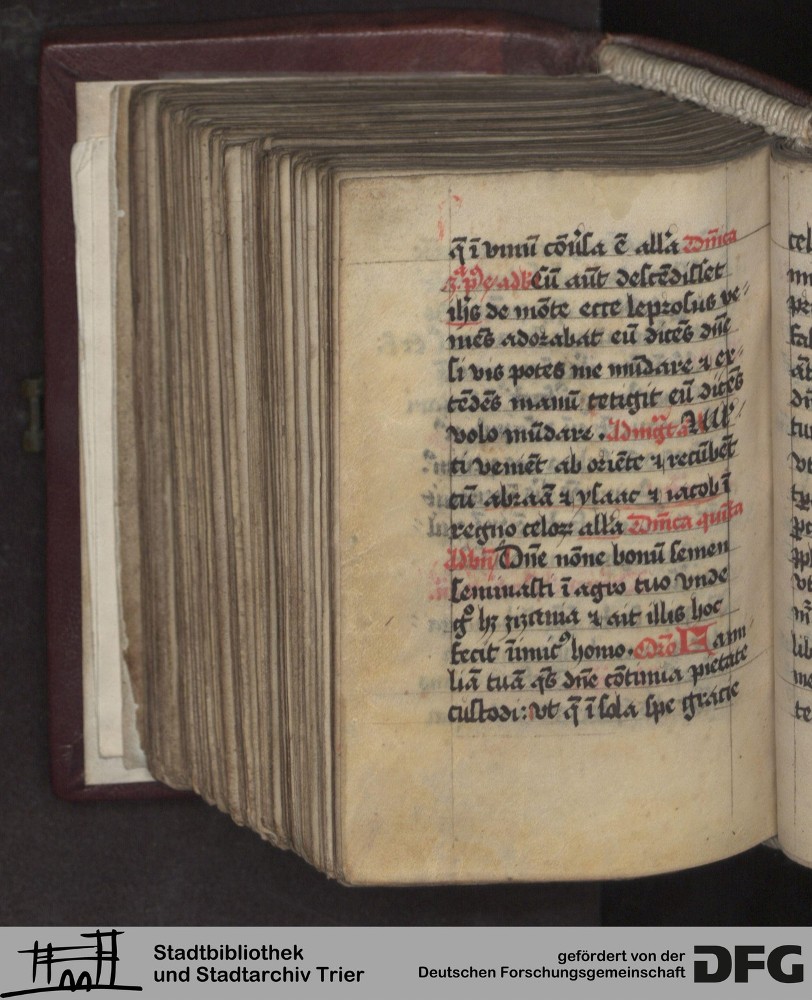 q̄ ī vinū cōūsa ē alľa Dm̄ca
ad Cū aūt descēdisset
ih̄s de mōte ecce leprosus ve
niēs adorabat eū dicēs dn̄e
si vis potes me mūdare ⁊ ex
tēdēs manū tetigit eū dicēs
volo mūdare . Ad mḡt Mľ
ti veniēt ab oriēte ⁊ recūbēt
cū abraā ⁊ ysaac ⁊ iacob ī
regno celoꝝ alľa Dm̄ca quīta
Ad bn̄ Dn̄e nōne bonū semen
seminasti ī agro tuo vnde
gͦ hꝫ zizania ⁊ ait illis hoc
fecit īimicꝰ homo . Oro Fam
liā tuā q̄s dn̄e cōtinua pietate
custodi : vt q̄ ī sola spe gracie
Stadtbibliothek
und Stadtarchiv Trier
gefördert von der
Deutschen Forschungsgemeinschaft
DFG